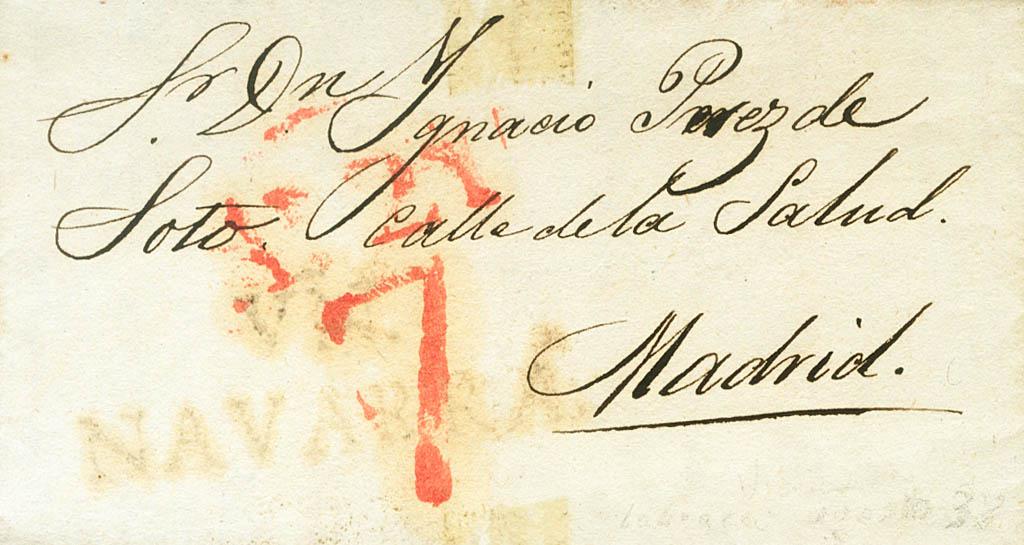 Sr. Dn. Ygnacio Perez de
Soto. Calle de la Salud.
Madrid.
7
NAVARRA